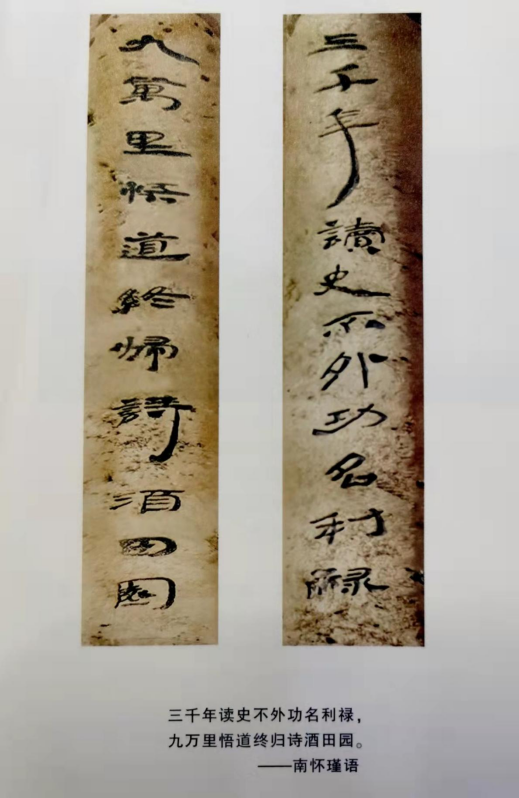 三千年讀史不外功名利祿
九萬里悟道終帰詩酒田園
三千年读史不外功名利禄，
九万里悟道终归诗酒田园。
——南怀瑾语